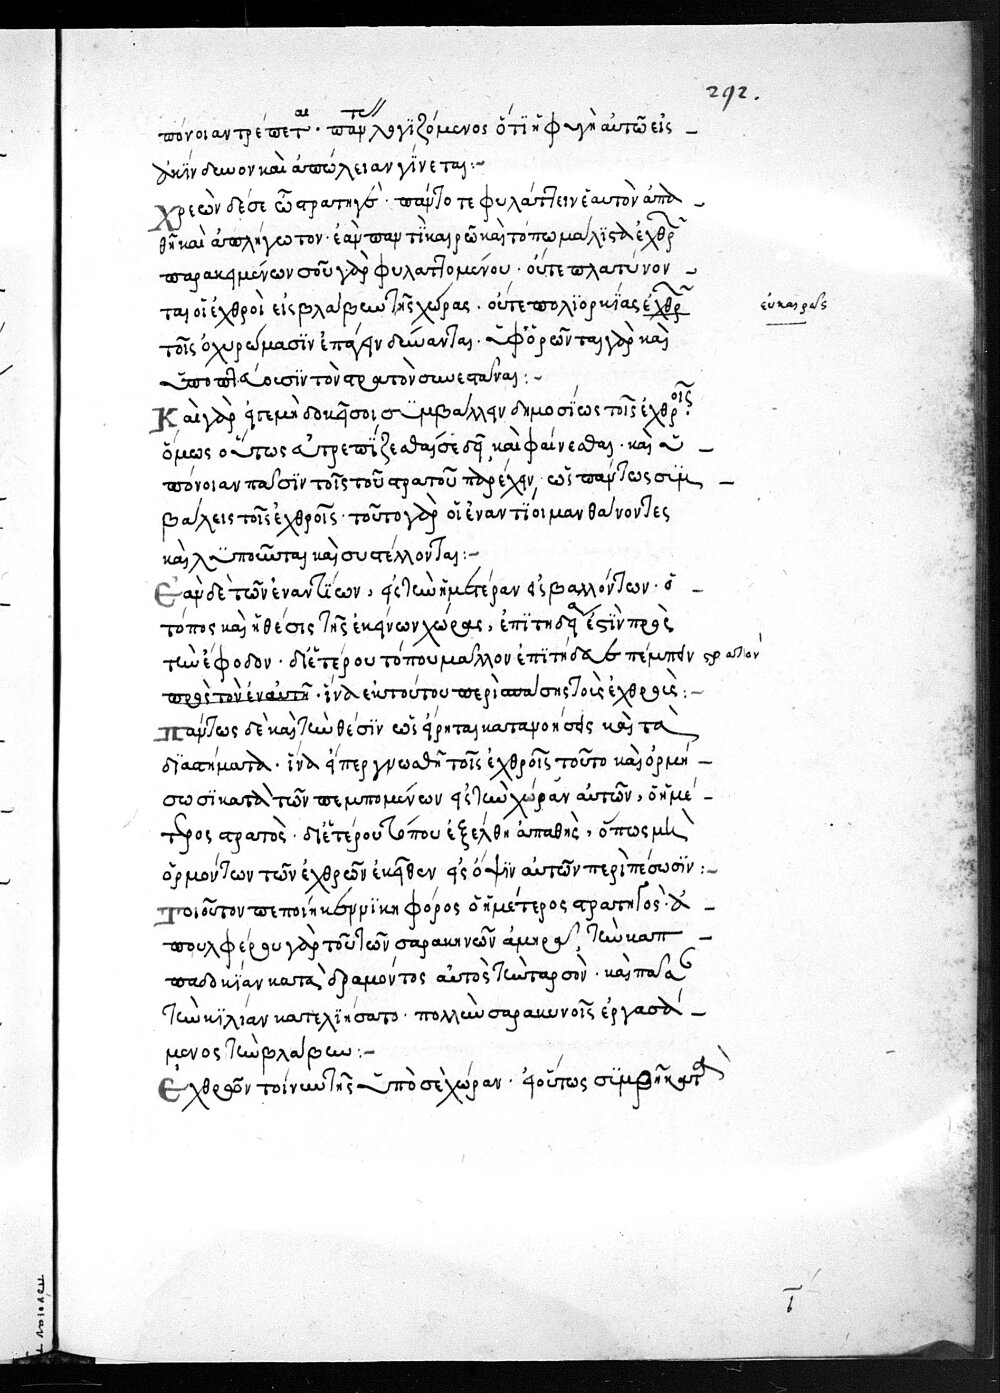 292.
πόνοιαν τρέπεται· πάντη λογϊζόμενος ὅτϊ ἡ φυγὴ αὐτῶ εἰς
κίνδυνον καὶ ἀπώλειαν γίνεται:~
Χρεὼν δέ σε ὦ στρατηγὲ· πάντοτε φυλάττειν ἑαυτὸν ἀπα
θῆ καὶ ἀπλήγωτον· ἐὰν παντὶ καιρῶ καὶ τόπω μάλϊστα ἐχθρῶν
παρακειμένων σοῦ γὰρ φυλαττομένου· οὔτε πλατύνον
ται οἱ ἐχθροὶ εἰς βλάβην τῆς χώρας· οὔτε πολϊορκίας ἐχθρῶν
τοῖς ὀχυρώμασϊν ἐπάγειν δύνανται· ὑφορῶνται γὰρ καὶ
ὑποπτεύουσϊν τὸν στρατὸν συνεῖναι:~
Καὶ γὰρ εἴτε μὴ δοκῆ σοι συμβάλλειν δημοσίως τοῖς ἐχθροῖς·
ὅμως οὕτως εὐτρεπϊζεσθαί σε δεῖ, καὶ φαίνεσθαι· καὶ ὑ
πόνοιαν πᾶσϊν τοῖς τοῦ στρατοῦ παρέχειν, ὡς πάντως συμ
βάλεις τοῖς ἐχθροῖς· τοῦτο γὰρ οἱ ἐναντϊοι μανθάνοντες
καὶ λυποῦνται καὶ συστέλλονται:~
Ἐὰν δὲ τῶν ἐναντϊων, εἰς τὴν ἡμετέραν εἰσβαλλόντων· ὁ
τόπος καὶ ἡ θέσις τῆς ἐκείνων χώρας, ἐπϊτηδεία ἐστϊν πρὸς
τὴν ἔφοδον· δι' ἑτέρου τόπου μᾶλλον ἐπϊτήδευε πέμπειν στρατὸν
πρὸς τὸν ἐν αὐτῆ· ἵνα ἐκ τούτου περϊσπάσης τοὺς ἐχθροὺς:~
Πάντως δὲ καὶ τὴν θέσϊν ὡς εἴρηται κατανοήσεις καὶ τὰ
διαστήματα· ἵνα εἴπερ γνωσθῆ τοῖς ἐχθροῖς τοῦτο καὶ ὁρμή
σωσϊ κατὰ τῶν πεμπομένων εἰς τὴν χώραν αὐτῶν, ὁ ἡμέ
τερος στρατὸς· δι' ἑτέρου τόπου ἐξέλθη ἀπαθὴς, ὅπως μὴ
ὁρμόντων τῶν ἐχθρῶν ἐκεῖθεν εἰς ὄψϊν αὐτῶν περϊπέσωσϊν:~
Τοιοῦτον πεποίηκεν νϊκηφόρος ὁ ἡμέτερος στρατηγὸς· ἀ
πουλφέρ του γὰρ τοῦ τῶν σαρακηνῶν ἀμηρᾶ, τὴν καπ
παδοκίαν καταδραμόντος αὐτὸς τὴν ταρσὸν· καὶ πᾶσαν
τὴν κϊλϊκίαν κατελϊήσατο· πολλὴν σαρακυνοῖς ἐργασά
μενος τὴν βλάβην:~
Ἐχθρῶν τοίνυν τῆς ὑπὸ σὲ χώραν· εἰ οὕτως συμβῆ κατὰ
εὐκαιρεῖς